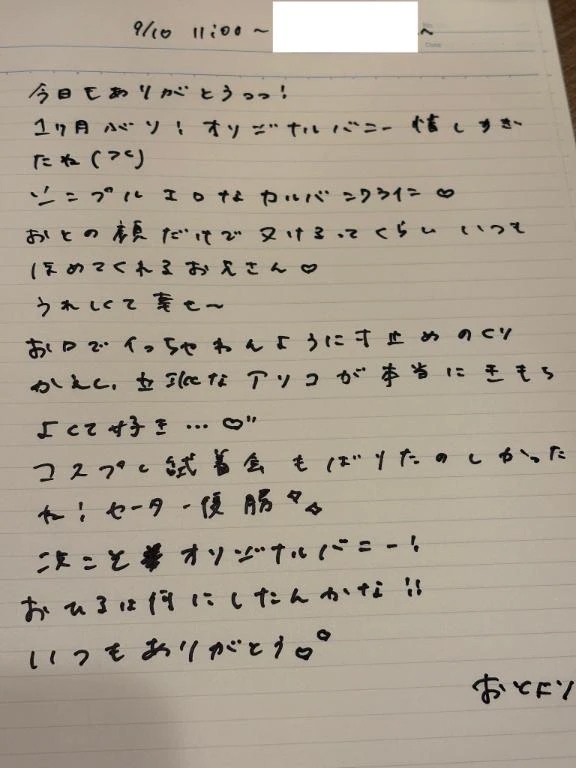 9/10 11:00〜 へ
今日もありがとうっっ!
1ヶ月ぶり! オリジナルバニー 惜しすぎ
たね(つc)
シンプル エロな カルバンクライン♡
おとの顔だけで ヌけるってくらい いつも
ほめてくれるお兄さん♡
うれしくて幸せ〜
お口でイっちゃわんように寸止めのくり
かえし、立派なアソコが本当にきもち
よくて好き…♡"
コスプレ試着会もばりたのしかった
ね! セーター優勝
次こそ オリジナルバニー!
おひるは何にしたんかな!!
いつもありがとう♡
おとより